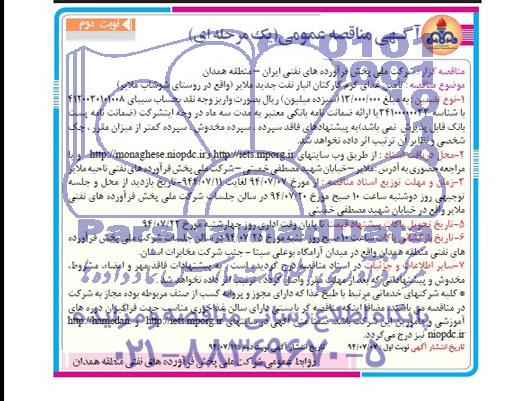 نوبت دوم
آگهی مناقصه عمومی (یک مرحله ای)
مناقصه گزار: شرکت ملی پخش فرآورده های نفتی ایران – منطقه همدان
موضوع مناقصه: تامین غذای گرم کارکنان انبار نفت جدید ملایر (واقع در روستای شوشاب ملایر)
۱-نوع تضمین: به مبلغ ۱۳/۰۰۰/۰۰۰ (سیزده میلیون) ریال بصورت واریز وجه نقد بحساب سیبای ۴۱۲۰۰۳۰۱۰۱۰۰۸
با شناسه یا ارائه ضمانت نامه بانکی معتبر به مدت سه ماه در وجه اینشرکت (ضمانت نامه پست
بانک قابل پذیرش نمی باشد) به پیشنهادهای فاقد سپرده ، سپرده مخدوش، سپرده کمتر از میزان مقرر، چک
شخصی و نظایر آن ترتیب اثر داده نخواهد شد.
۲-محل دریافت اسناد : از طریق وب سایتهای http://iets.mporg.ir و http://monaghese.niopdc.ir و یا
مراجعه حضوری به آدرس: ملایر – خیابان شهید مصطفی خمینی – شرکت ملی پخش فرآورده های نفتی ناحیه ملایر
۳-زمان و مهلت توزیع اسناد مناقصه : از مورخ ۹۴/۰۷/۰۷ لغایت ۹۴/۰۷/۱۱ -تاریخ بازدید از محل و جلسه
توجیهی روز دوشنبه ساعت ۱۰ صبح مورخ ۹۴/۰۷/۲۰ در سالن جلسات شرکت ملی پخش فرآورده های نفتی
ملایر واقع در خیابان شهید مصطفی خمینی
۵-تاریخ تحویل پاکات پیشنهاد قیمت تا پایان وقت اداری روز چهارشنبه مورخ ۹۴/۰۷/۲۲
۶-تاریخ بازگشایی پاکات ساعت ۱۰ صبح روز شنبه مورخ ۹۴/۰۷/۲۵ در سالن جلسات شرکت ملی پخش فرآورده
های نفتی منطقه همدان واقع در میدان آرامگاه بوعلی سینا – جنب شرکت مخابرات استان
۷-سایر اطلاعات و جزئیات در اسناد مناقصه درج گردیده است. به پیشنهادات فاقد مهر و امضاء، مشروط،
مخدوش و پیشنهاداتی که بعد از مهلت مقرر واصل گردد، ترتیب اثر داده نخواهد شد
* کلیه شرکتهای خدماتی مرتبط با طبخ غذا که دارای مجوز و پروانه کسب از صنف مربوطه بوده مجاز به شرکت
در مناقصه می باشند. مضافا اینکه مناقصه گر بایستی دارای سالن غذاخوری مناسب جهت فراگیران دوره های
آموزشی و مامورین این شرکت باشد. ضمنا این آگهی در سایتهای http://iets.mporg.ir و http://hamedan
niopdc.ir نیز درج می گردد.
تاریخ انتشار آگهی نوبت اول: ۹۴/۰۷/۰۷ تاریخ انتشار آگهی نوبت دوم: ۹۴/۰۷/۱۱
روابط عمومی شرکت ملی پخش فرآورده های نفتی منطقه همدان
۰۲۱-۸۸۳۴۹۶۷۰-۵